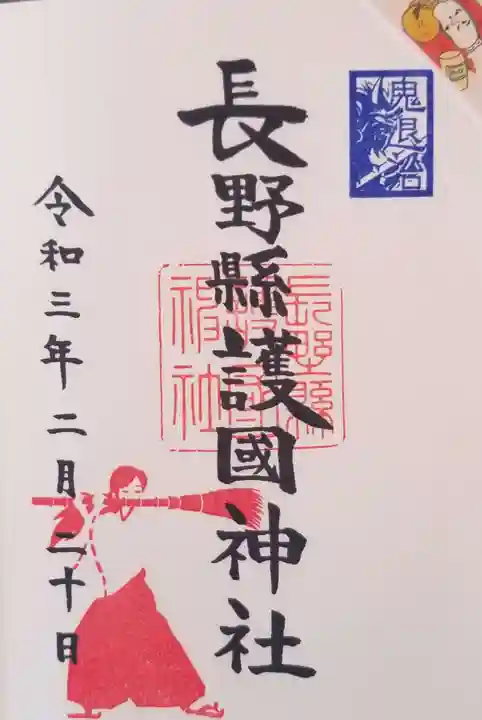 鬼退治
長野縣護國神社
長野縣護國神社
令和三年二月二十日